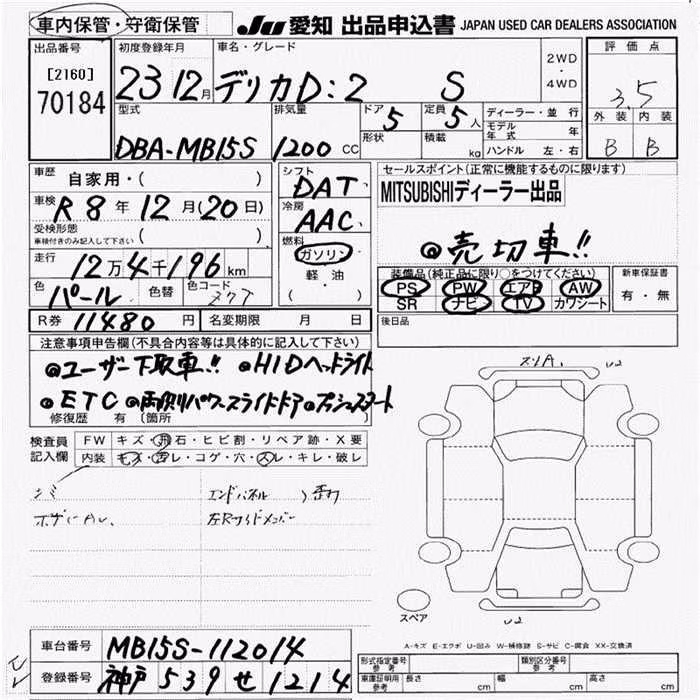 車内保管・守衛保管
JU 愛知 出品申込書 JAPAN USED CAR DEALERS ASSOCIATION
出品番号
[2160]
70184
初度登録年月
23 12月
車名・グレード
デリカD:2 S
2WD
・
4WD
評価点
3.5
外装 内装
B B
型式
DBA-MB15S
排気量
1200 CC
ドア 5
形状
定員 5人
積載 kg
ディーラー・並行
モデル年式 年
ハンドル 左・右
車歴
自家用・( )
車検 R8年12月(20日)
受検形態
車検付きのみ記入して下さい ( )
走行
12万4千196km
色 パール 色替 色コード
R券 11480円 名変期限 月 日
シフト
DAT
冷房
AAC
燃料
ガソリン
軽油
( ・ )
セールスポイント(正常に機能するものに限ります)
MITSUBISHIディーラー出品
◎売切車!!
装備品(純正品に限り○をつけてください)
PS PW エアB AW
SR ナビ TV カワシート
新車保証書
有・無
後日品
注意事項申告欄(不具合内容等は具体的に記入して下さい)
◎ユーザー下取車!! ◎HIDヘッドライト
◎ETC ◎両側パワースライドドア ◎プッシュスタート
修復歴 有 〔箇所
検査員記入欄
FW キズ・飛石・ヒビ割・リペア跡・X要
内装 キズ・汚レ・コゲ・穴・スレ・キレ・破レ
エンドパネル
左Rサイドメンバー
スリA. U2
スペア
U2
A-キズ E-エクボ U-凹み W-補修跡 S-サビ C-腐食 XX-交換済
車台番号 MB15S-112014
登録番号 神戸 539 せ 1214
形式指定番号 参考
類別区分番号 参考
車庫証明用 参考 長さ cm 幅 cm 高さ cm